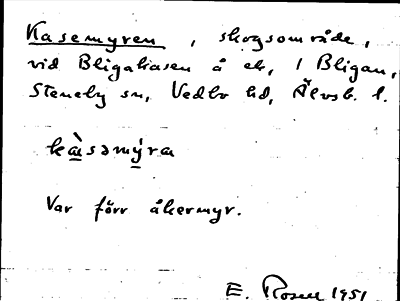 Kasemyren, skogsområde,
vid Bligakasen å ek, 1 Bligan,
Steneby sn, Vedbo hd, Älvsb. l.
kàsəmy̌ra
Var förr åkermyr.
E. Rosell 1951